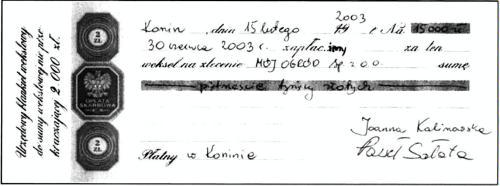 Urzędowy blankiet wekslowy
do sumy wekslowej nie prze-
kraczającej 2 000 zł.
2
ZŁ
OPŁATA
SKARBOWA
2
ZŁ
2003
Konin, dnia 15 lutego r. Na 15 000 zł
30 czerwca 2003 r. zapłacimy za ten
weksel na zlecenie MÓJ OGRÓD Sp. z o.o. sumę
piętnaście tysięcy złotych
Joanna Kalinowska
Płatny w Koninie
Paweł Sałata